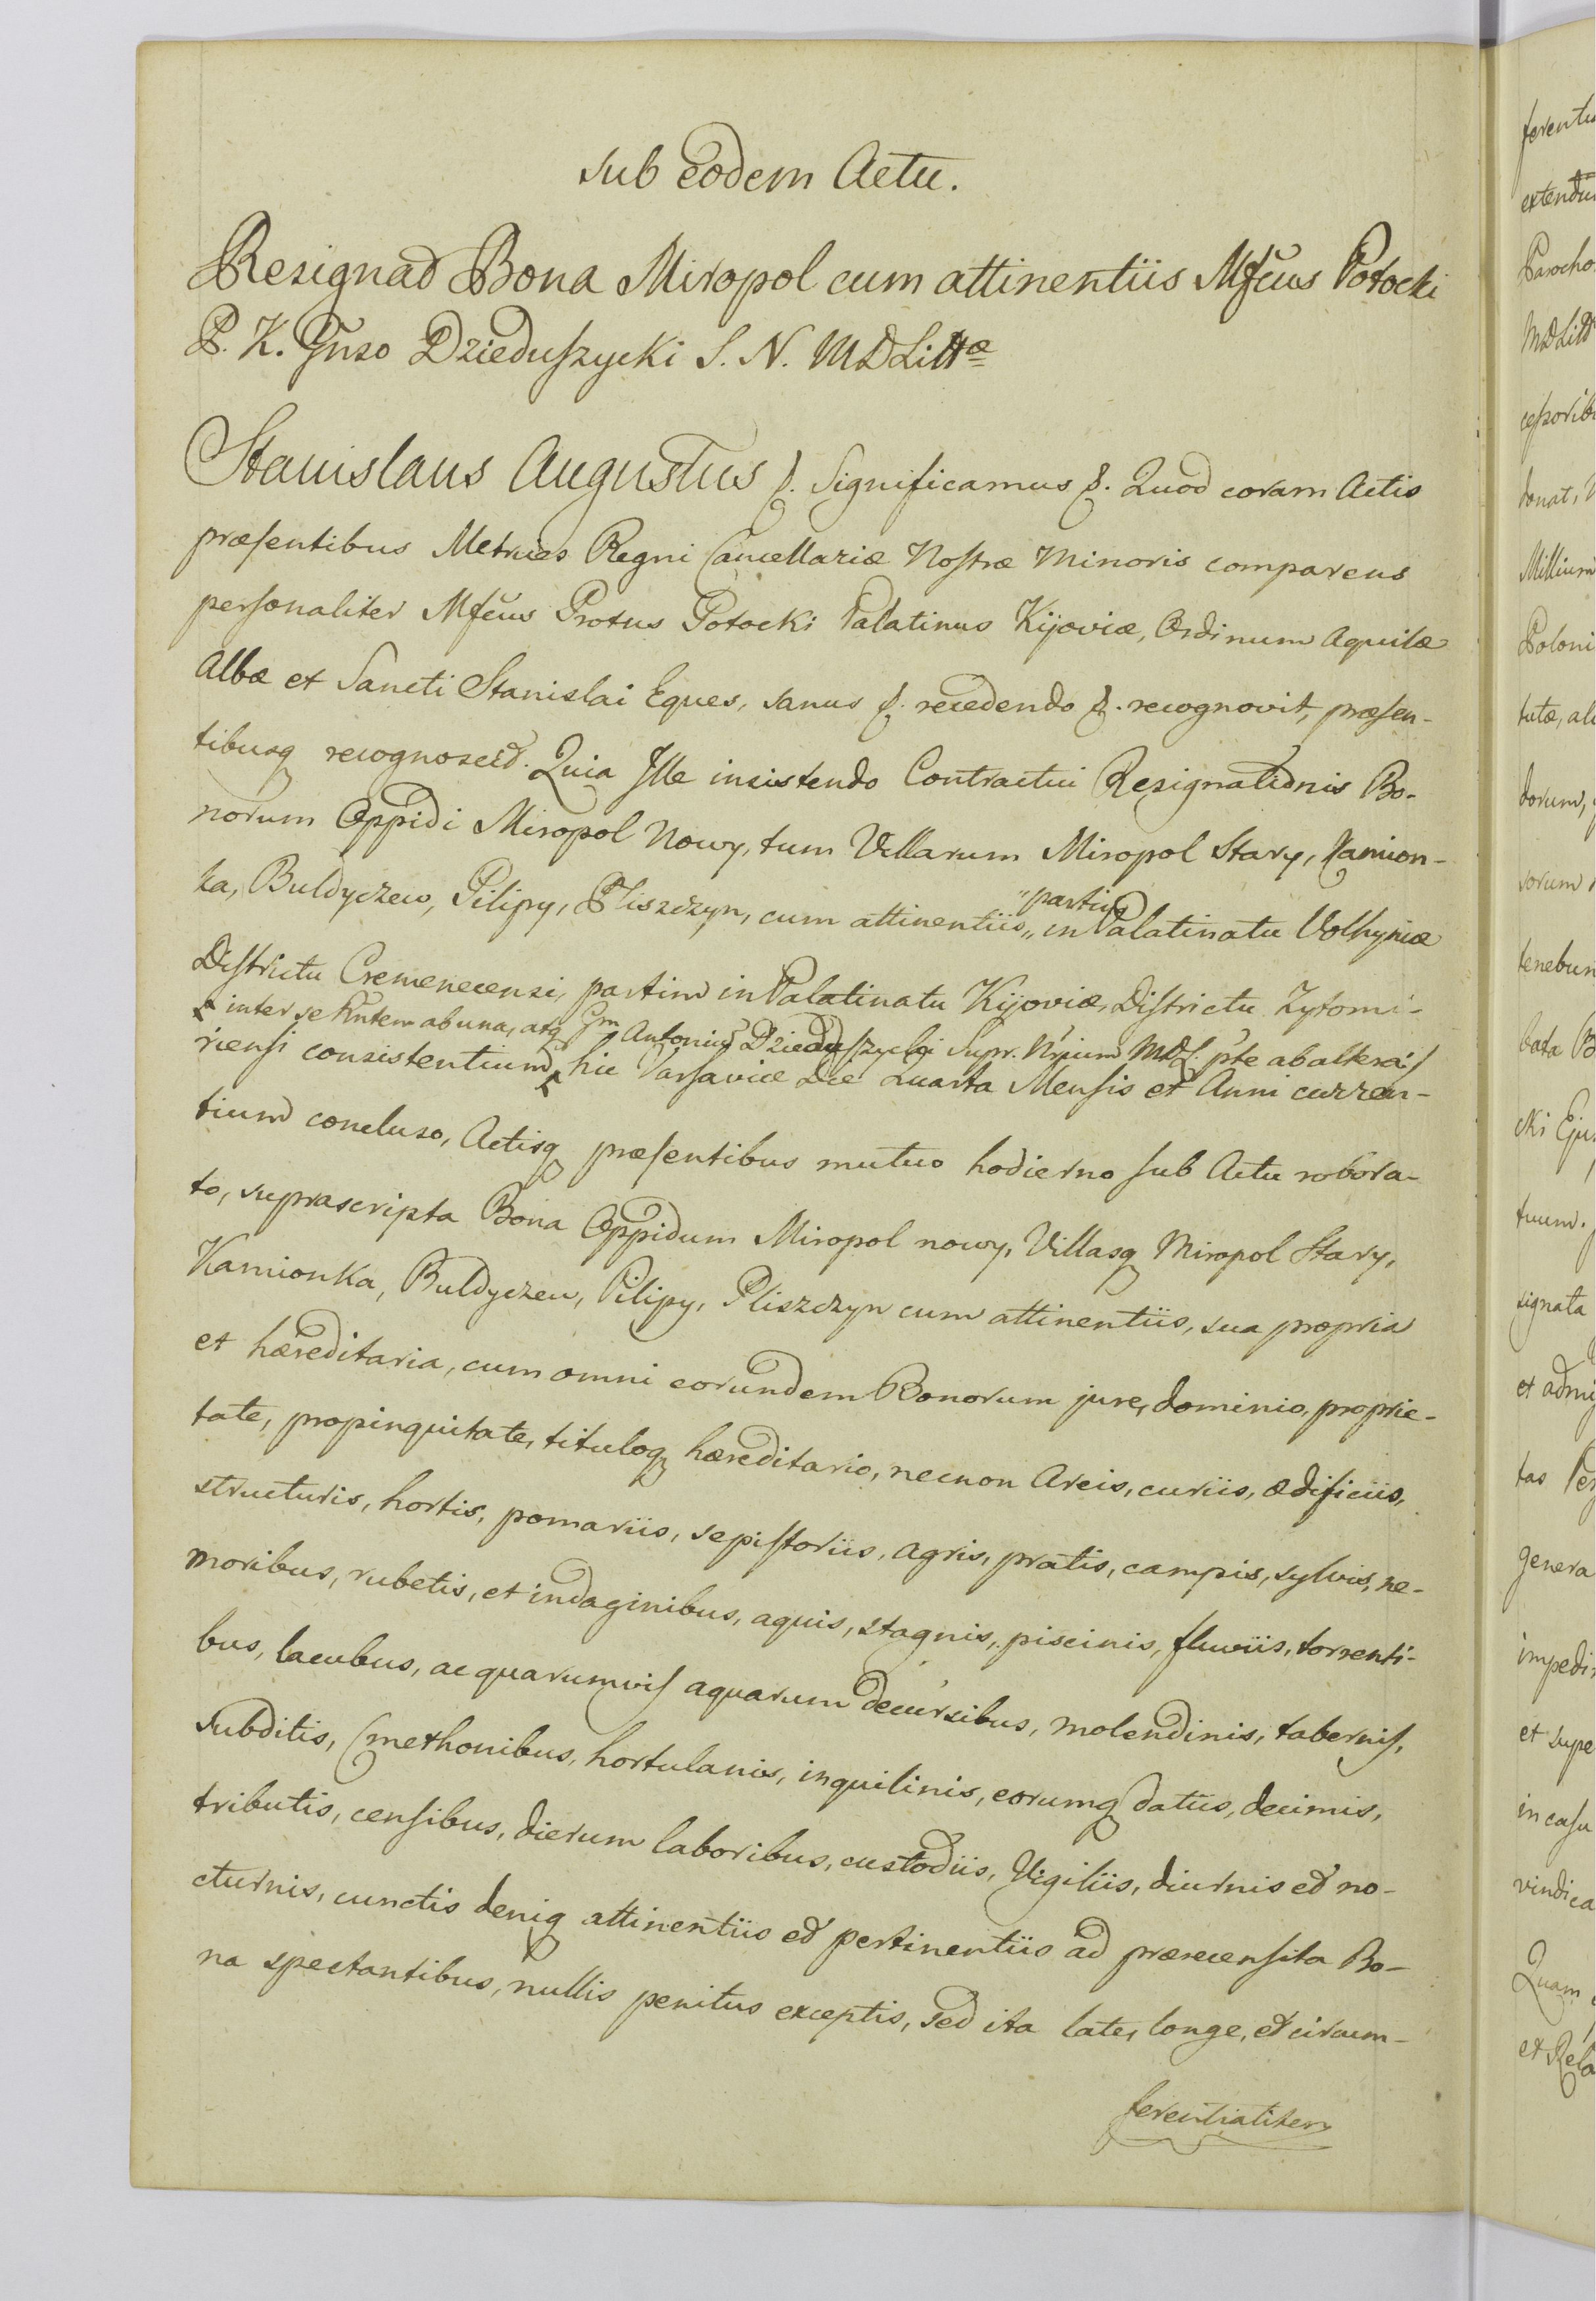 Sub eodem Actu.
Resignat Bona Miropol cum attinentiis Mfcus Potocki
P. K. Gnso Dzieduszycki S. N. MDLittæ
Stanislaus Augustus &. Significamus &. Quod coram Actis
præsentibus Metrices Regni Cancellariæ Nostræ Minoris comparens
personaliter Mfcus Protus Potocki Palatinus Kijoviæ, Ordinum Aquilæ
Albæ et Sancti Stanislai Eques, sanus &. recedendo &. recognovit, præsen-
tibusq recognoscit. Quia Ille insistendo Contractui Resignationis Bo-
norum Oppidi Miropol Nowy, tum Villarum Miropol Stary, Kamion-
ka, Buldyczew, Pilipy, Pliszczyn, cum attinentiis „ partim in Palatinatu Volhyniæ
Districtu Cremenecensi, partim in Palatinatu Kijoviæ, Districtu Zytomi-
inter se ab una, atq Antonium Dzieduszycki Supr. MDL. pte ab altera
riensi consistentium, hic Varsaviæ Die Quarta Mensis et Anni curren-
tium concluso, Actisq præsentibus mutuo hodierno sub Actu robora-
to, suprascripta Bona Oppidum Miropol nowy, Villasq Miropol Stary,
Kamionka, Buldyczew, Pilipy, Pliszczyn cum attinentiis, sua propria
et hæreditaria, cum omni eorundem Bonorum jure, dominio, proprie-
tate, propinquitate, tituloq hæreditario, necnon Areis, curiis, ædificiis,
structuris, hortis, pomariis, sepistoriis, agris, pratis, campis, sylvis, ne-
moribus, rubetis, et indaginibus, aquis, stagnis, piscinis, fluviis, torrenti-
bus, lacubus, ac quarumvis aquarum decursibus, molendinis, tabernis,
Subditis, Cmethonibus, hortulanis, inquilinis, eorumq datiis, decimis,
tributis, censibus, dierum laboribus, custodiis, Vigiliis, diurnis et no-
cturnis, cunctis deniq attinentiis et pertinentiis ad præcensita Bo-
na spectantibus, nullis penitus exceptis, sed ita late, longe, et circum-
ferentialiter